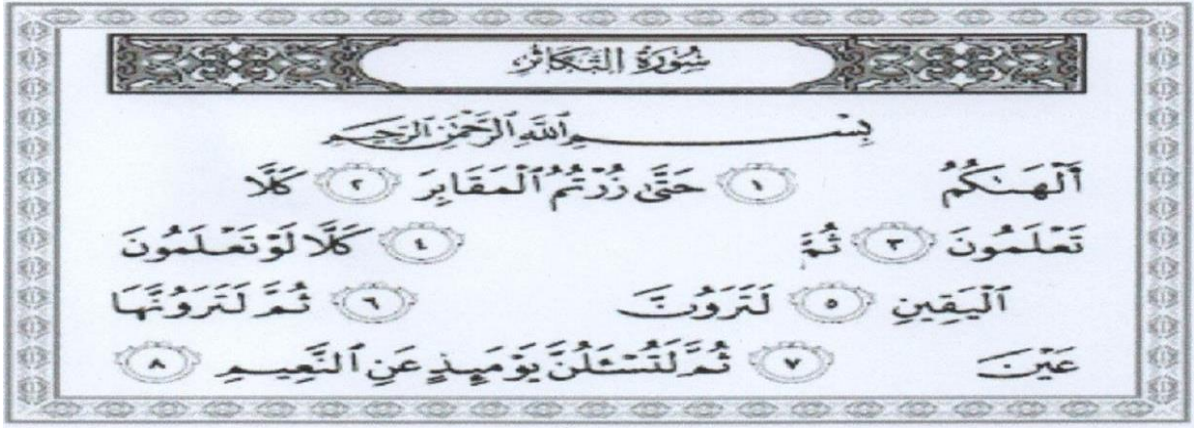 سُورَةُ التَّكَاثُرِ
بِسْمِ ٱللَّهِ ٱلرَّحْمَٰنِ ٱلرَّحِيمِ
أَلْهَىٰكُمُ ١ حَتَّىٰ زُرْتُمُ ٱلْمَقَابِرَ ٢ كَلَّا
تَعْلَمُونَ ٣ ثُمَّ ٤ كَلَّا لَوْ تَعْلَمُونَ
ٱلْيَقِينِ ٥ لَتَرَوُنَّ ٦ ثُمَّ لَتَرَوُنَّهَا
عَيْنَ ٧ ثُمَّ لَتُسْـَٔلُنَّ يَوْمَئِذٍ عَنِ ٱلنَّعِيمِ ٨